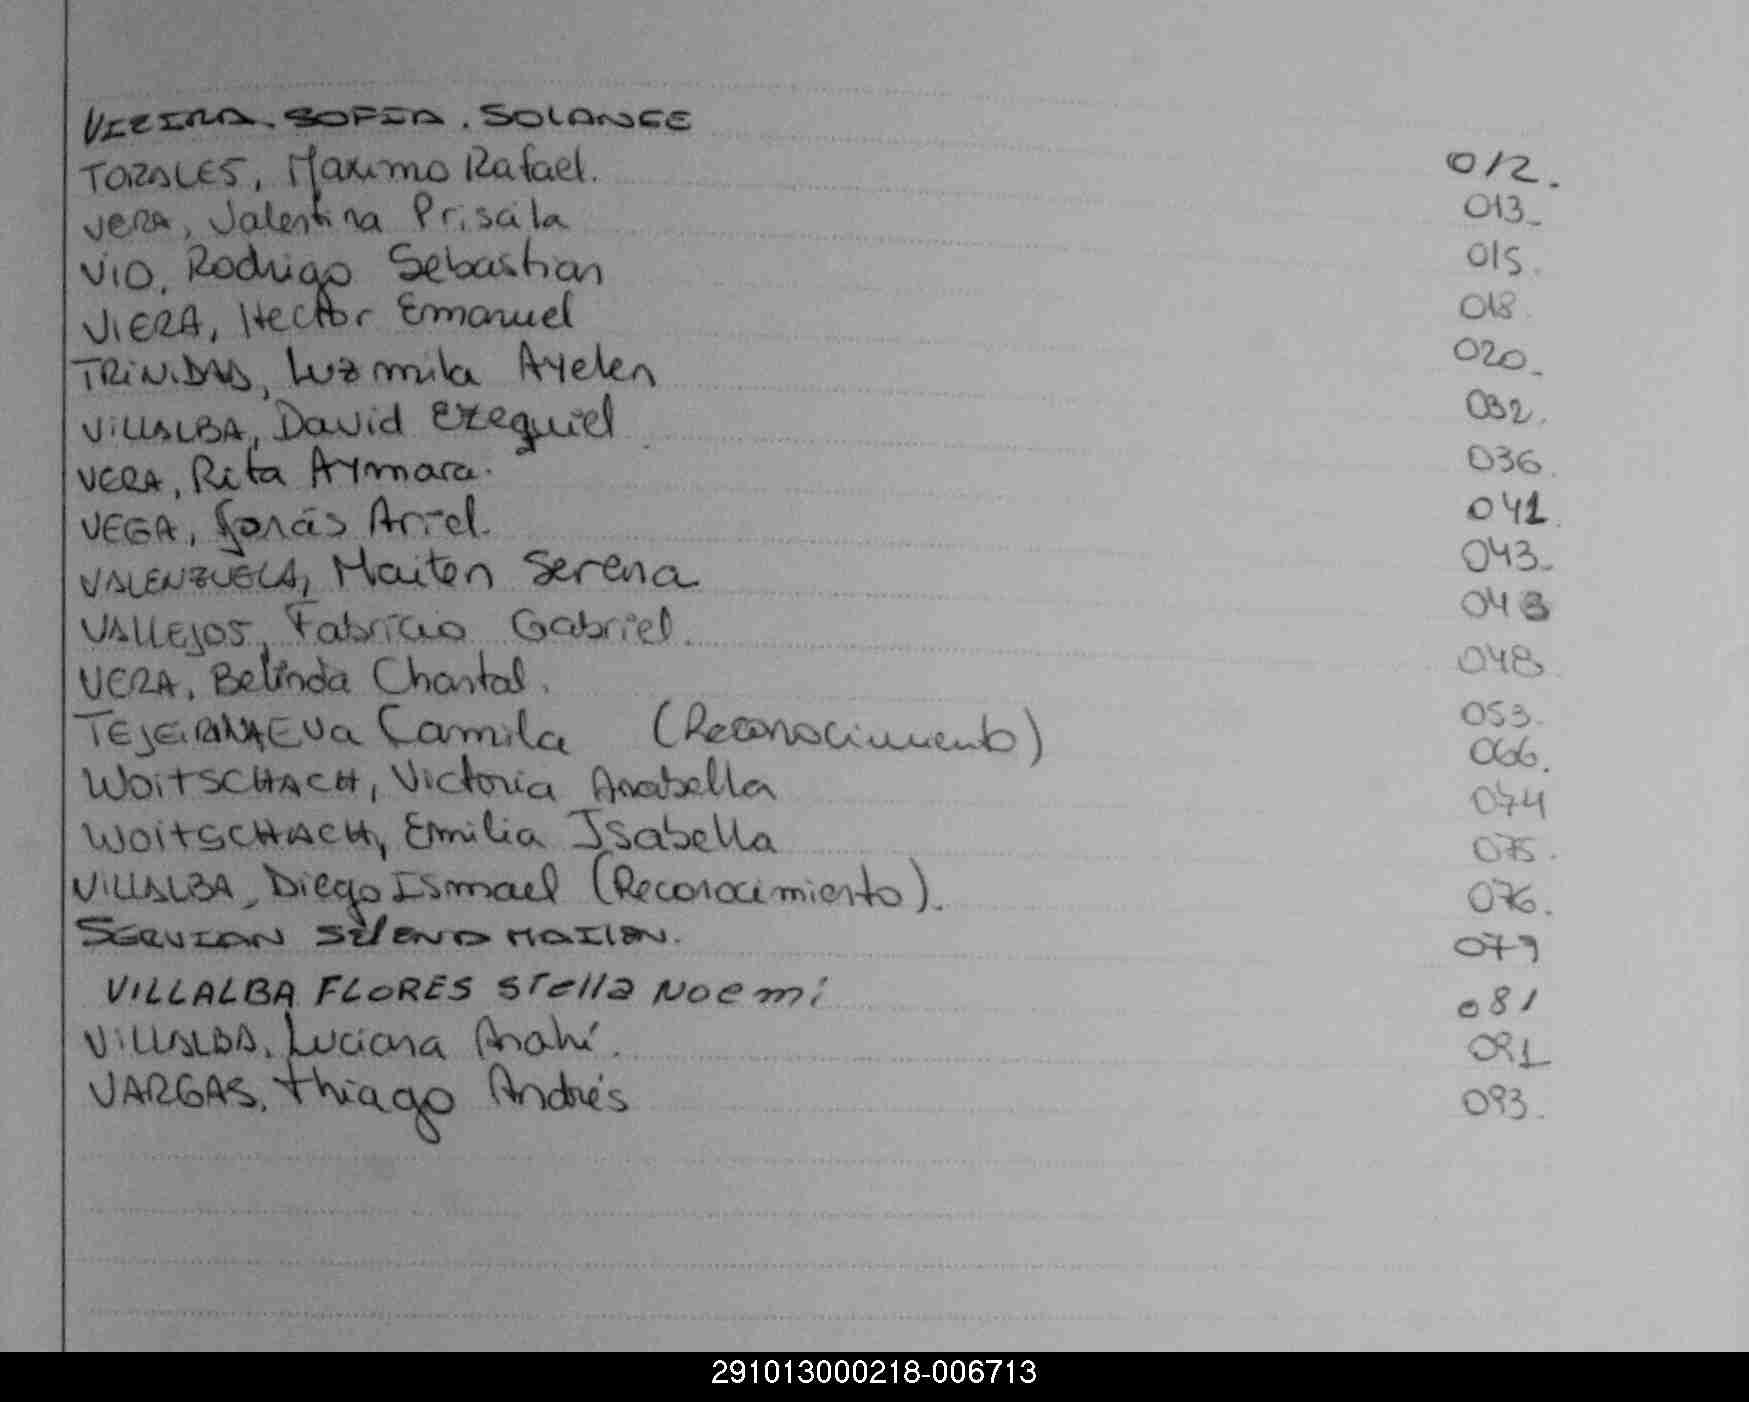 VIEIRA. SOFIA. SOLANGE 012.
TORALES, Maximo Rafael. 013.
VERA, Valentina Priscila 015.
VIO, Rodrigo Sebastian 018.
VIERA, Hector Emanuel 020.
TRINIDAD, Luzmila Ayelen 032.
VILLALBA, David Ezequiel 036.
VERA, Rita Aymara. 041.
VEGA, Jonás Ariel. 043.
VALENZUELA, Maiten Serena 043
VALLEJOS, Fabricio Gabriel. 048
VERA, Belinda Chantal. 053.
TEJEIRA Eva Camila (Reconocimiento) 066.
WOITSCHACH, Victoria Anabella 074
WOITSCHACH, Emilia Isabella 075.
VILLALBA, Diego Ismael (Reconocimiento). 076.
SERVIAN SILENA MAILEN. 079
VILLALBA FLORES Stella Noemi 081
VILLALBA, Luciana Anahí. 091
VARGAS, Thiago Andrés 093.
291013000218-006713